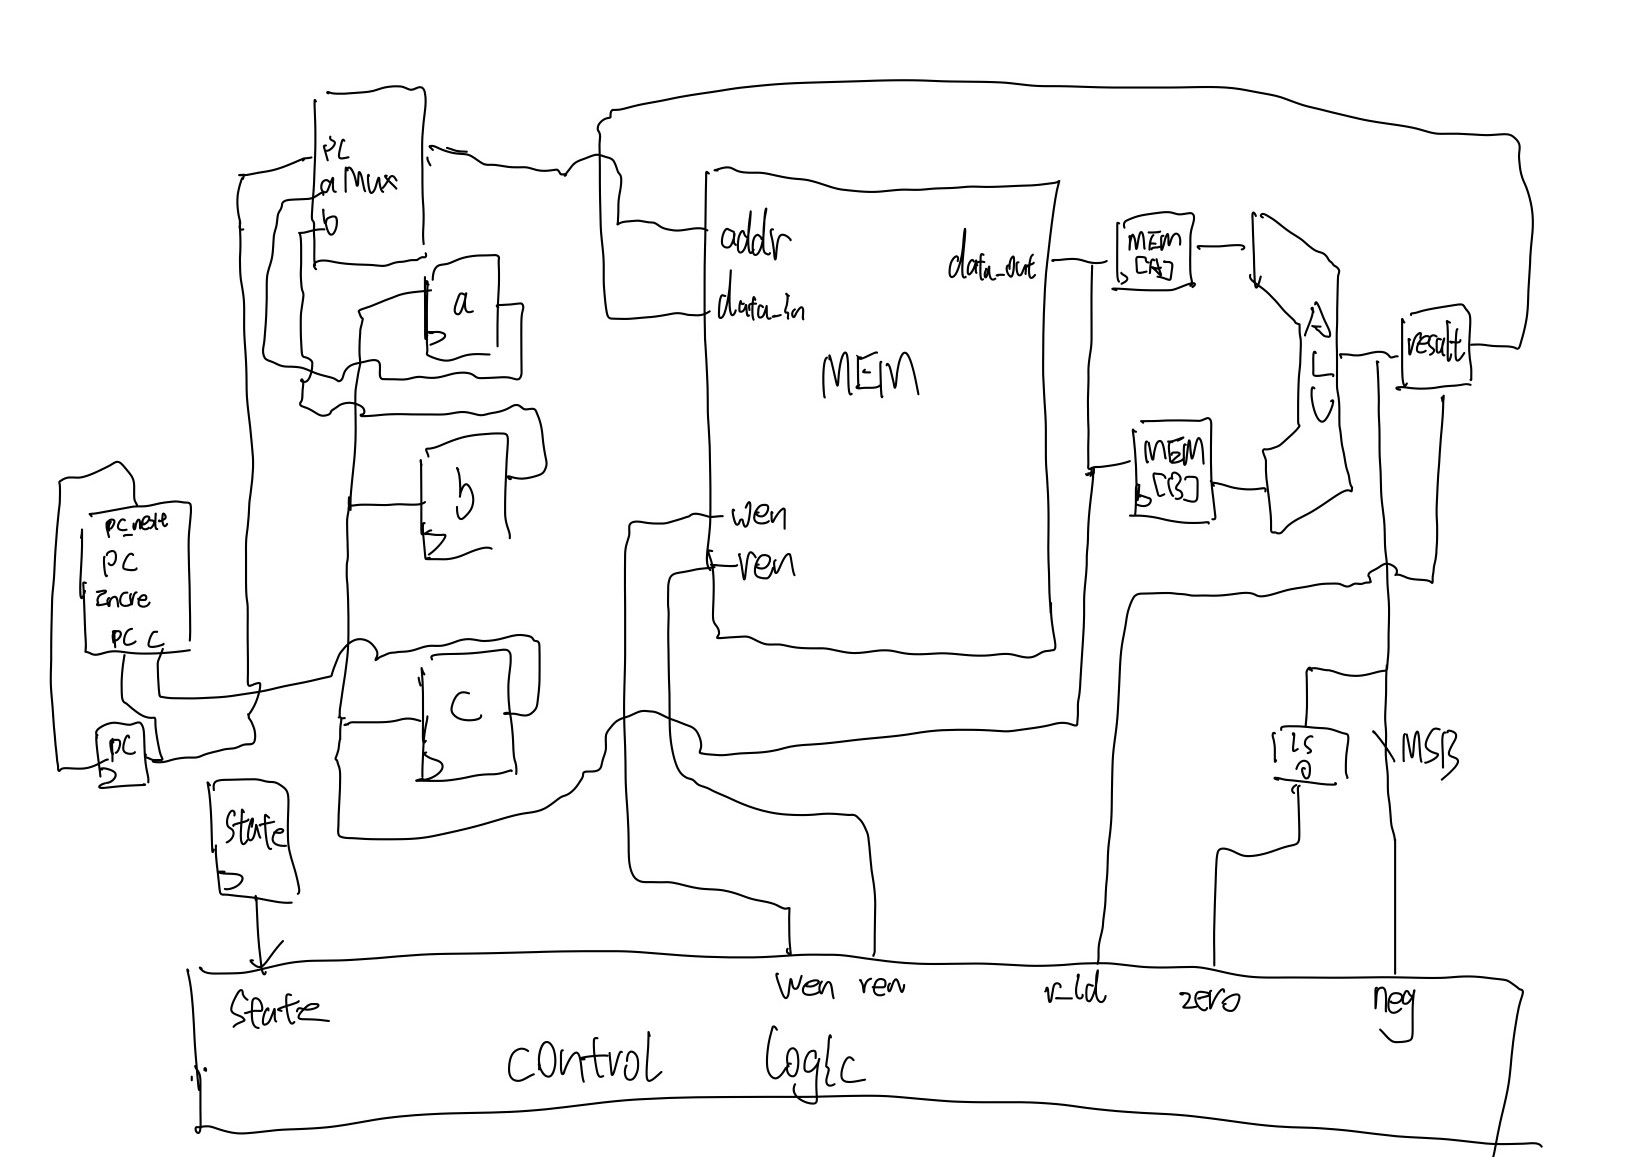 PC
a Mux
b
a
b
c
PC_next
PC
Incre
PC C
PC
State
addr
data_in
data_out
MEM
wen
ren
MEM
[A]
MEM
[B]
ALU
result
is
0
MSB
State
wen ren
r_ld
zero
neg
control logic